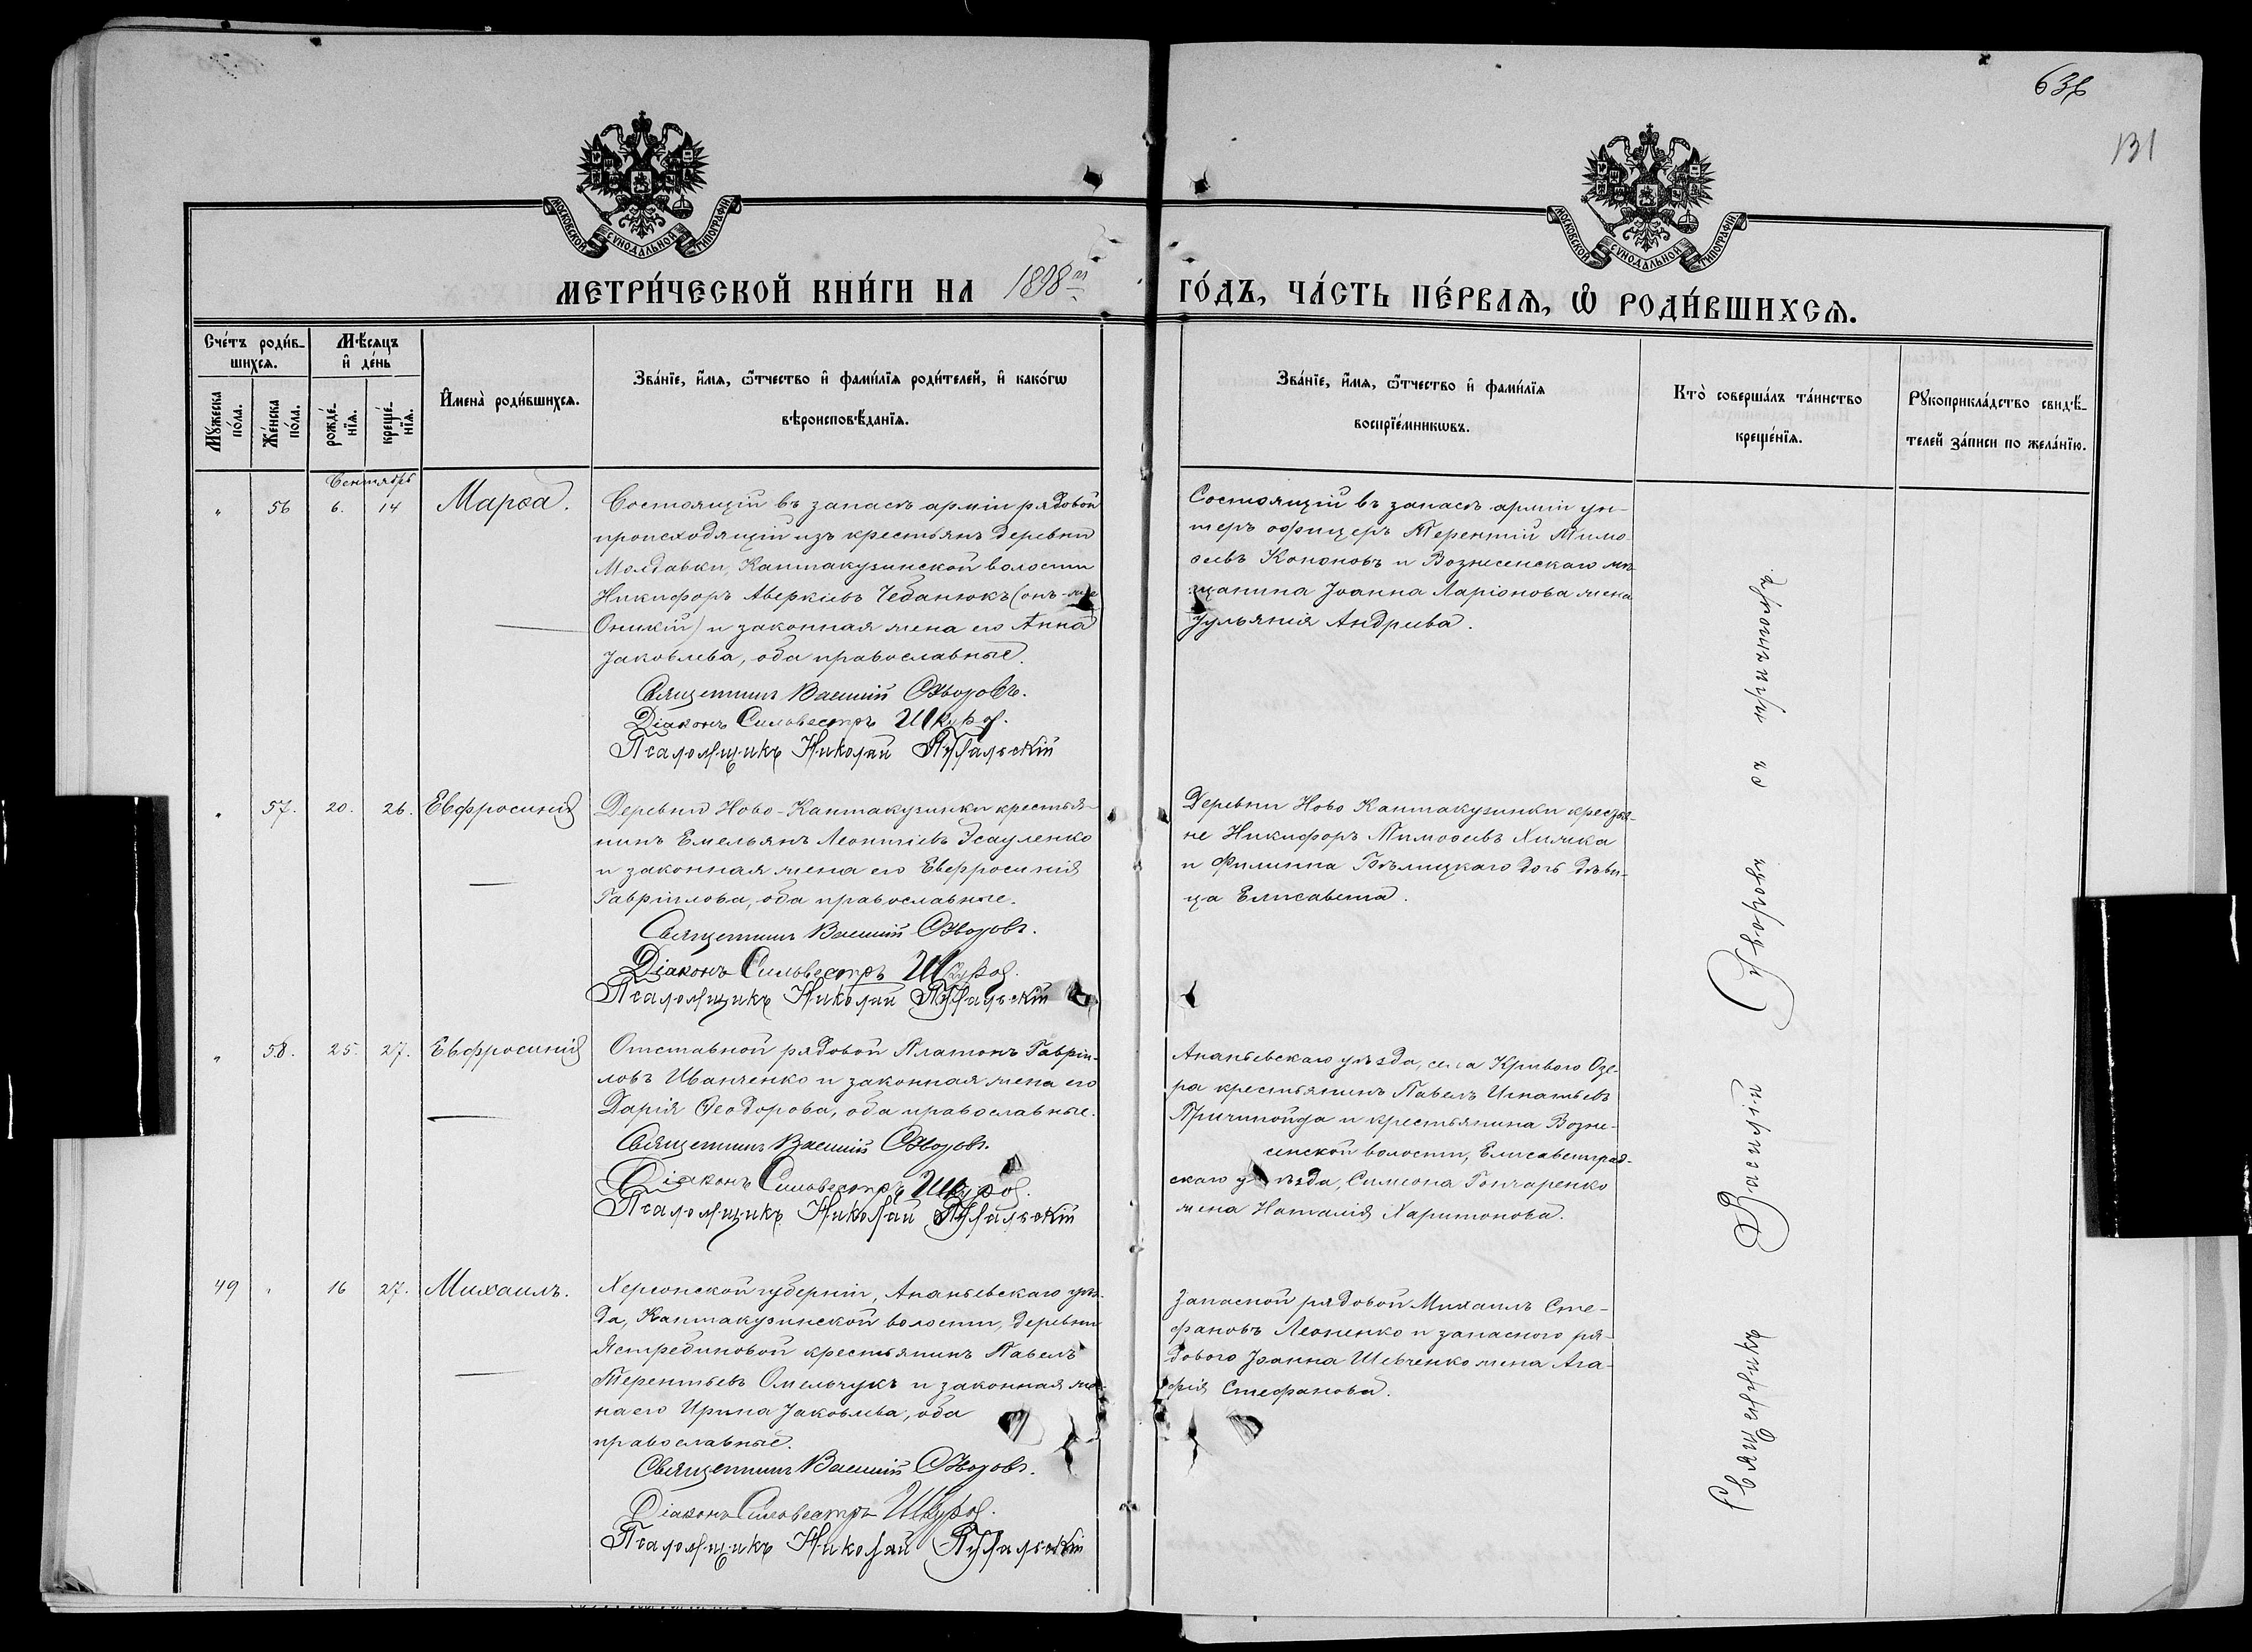 636
131
МОСКОВСКОЙ СѴНОДАЛЬНОЙ ТИПОГРАФІИ
МОСКОВСКОЙ СѴНОДАЛЬНОЙ ТИПОГРАФІИ
МЕТРИ́ЧЕСКОЙ КНИ́ГИ НА 1898 ГО́ДЪ, ЧА́СТЬ ПЕ́РВАѦ, Ѽ РОДИ́ВШИХСѦ.
Сче́тъ роди́в-
шихсѧ.
Мꙋ́жеска по́ла.
Же́нска по́ла.
Мѣ́сѧцъ
и҆ де́нь
рожде́-
нїѧ.
креще́-
нїѧ.
И҆мена̀ роди́вшихсѧ.
Зва́нїе, и҆́мѧ, ѻ҆́тчество и҆ фами́лїѧ роди́телей, и҆ како́гѡ
вѣроисповѣ́данїѧ.
Зва́нїе, и҆́мѧ, ѻ҆́тчество и҆ фами́лїѧ
воспрїе́мникѡвъ.
Кто̀ соверша́лъ та́инство
креще́нїѧ.
Рꙋкоприкла́дство свидѣ́-
телей за́писи по жела́нїю.
Сентябрь
" 56 6. 14 Марѳа.
Состоящій въ запасѣ арміи рядовой
происходящій изъ крестьянъ деревни
Молдавки, Кантакузинской волости
Никифоръ Аверкіевъ Чебанюкъ (онъ-же
Оникій) и законная жена его Анна
Іаковлева, оба православные.
Священникъ Василій Суворовъ.
Діаконъ Сильвестръ
Псаломщикъ Николай
Состоящій въ запасѣ арміи ун-
теръ офицеръ Терентій Тимо-
ѳеевъ Кононовъ и Вознесенскаго мѣ-
щанина Іоанна Ларіонова жена
Іуліанія Андреева.
" 57. 20. 26. Евфросинія
Деревни Ново-Кантакузинки крестья-
нинъ Емельянъ Леонтіевъ Эсауленко
и законная жена его Евфросинія
Гавріилова, оба православные.
Священникъ Василій Суворовъ.
Діаконъ Сильвестръ
Псаломщикъ Николай
Деревни Ново Кантакузинки крестья-
не Никифоръ Тимоѳеевъ Химка
и Филиппа дочь дѣви-
ца Елисавета.
" 58. 25. 27. Евфросинія
Отставной рядовой Платонъ Гавріи-
ловъ Иванченко и законная жена его
Дарія Ѳеодорова, оба православные.
Священникъ Василій Суворовъ.
Діаконъ Сильвестръ
Псаломщикъ Николай
Ананьевскаго уѣзда, села Криваго Озе-
ра крестьянинъ Павелъ Игнатьевъ
и крестьянина Возне-
сенской волости, Елисаветград-
скаго уѣзда, Симеона Гончаренко
жена Наталія Харитонова.
49 " 16 27. Михаилъ.
Херсонской губерніи, Ананьевскаго уѣз-
да, Кантакузинской волости, деревни
Ястребиновой крестьянинъ Павелъ
Терентьевъ Омельчукъ и законная же-
на его Ирина Іаковлева, оба
православные.
Священникъ Василій Суворовъ.
Діаконъ Сильвестръ
Псаломщикъ Николай
Запасной рядовой Михаилъ Сте-
фановъ Леоненко и запасного ря-
дового Іоанна Шевченко жена Ага-
фія Стефанова.
Священникъ Василій Суворовъ съ причтомъ.